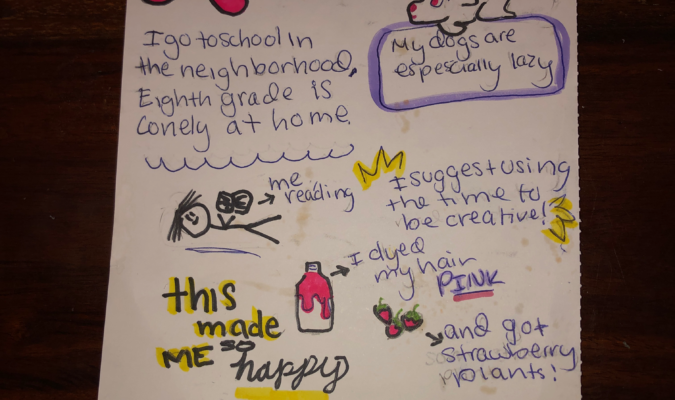 I go to school in
the neighborhood,
Eighth grade is
lonely at home.
My dogs are
especially lazy
me
reading
I suggest using
the time to
be creative!
I dyed
my hair
PINK
this
made
ME so
happy
and got
strawberry
plants!